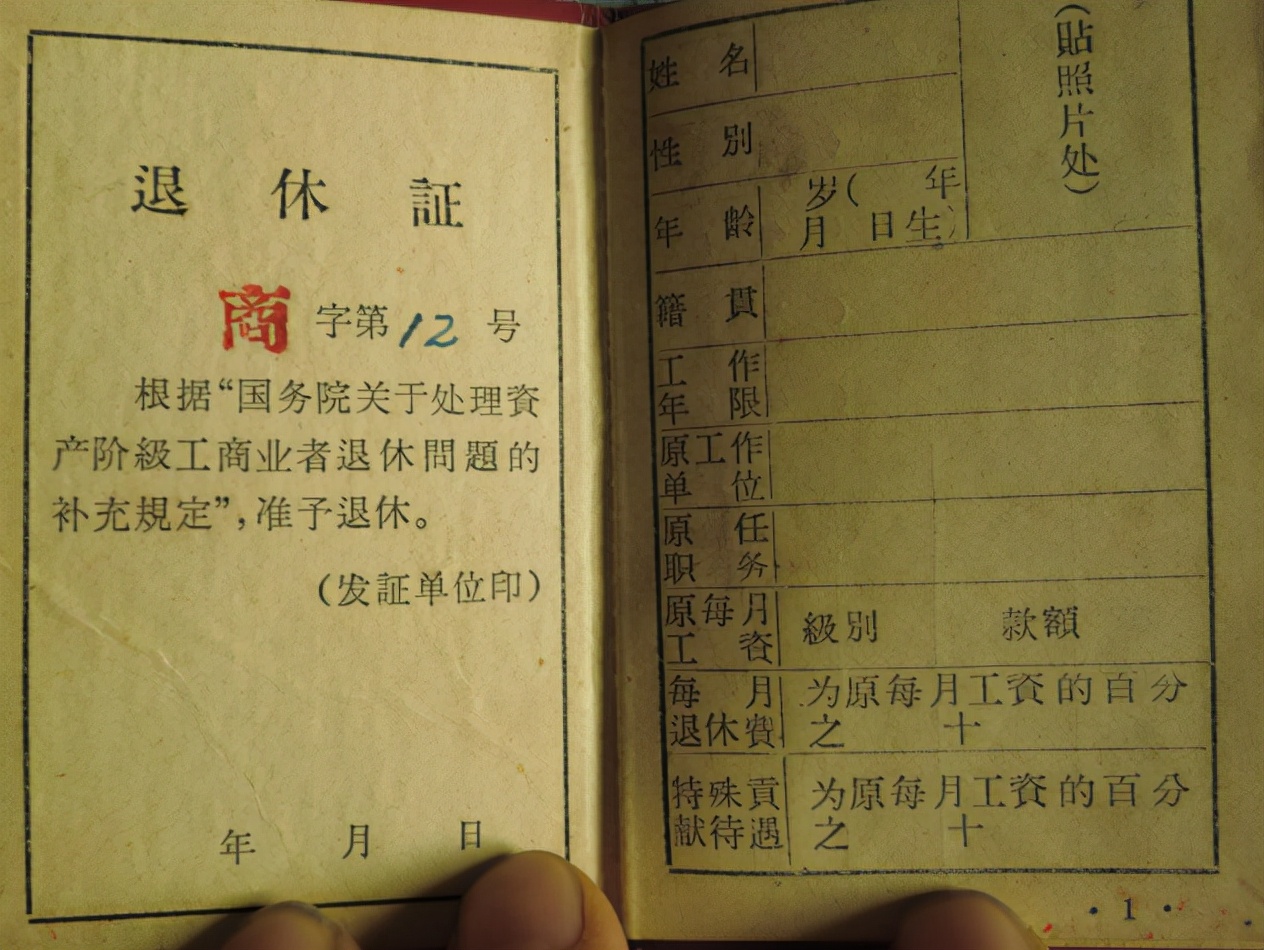 退休証
商 字第12号
根据“国务院关于处理資
产阶級工商业者退休問題的
补充規定”,准予退休。
(发証单位印)
年 月 日
姓名
(貼照片处)
性別
年齡 岁( 年
月 日生)
籍貫
工作
年限
原工作
单位
原任
职务
原每月
工資
級別 款額
每月
退休費
为原每月工資的百分
之 十
特殊貢
献待遇
为原每月工資的百分
之 十
·1·